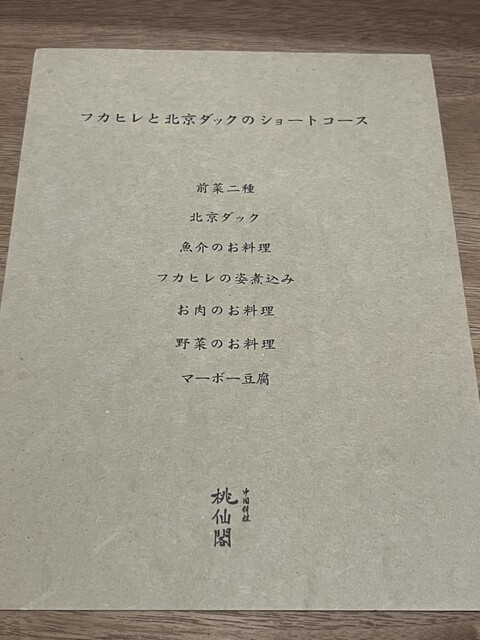 フカヒレと北京ダックのショートコース
前菜二種
北京ダック
魚介のお料理
フカヒレの姿煮込み
お肉のお料理
野菜のお料理
マーボー豆腐
中国料理
桃仙閣